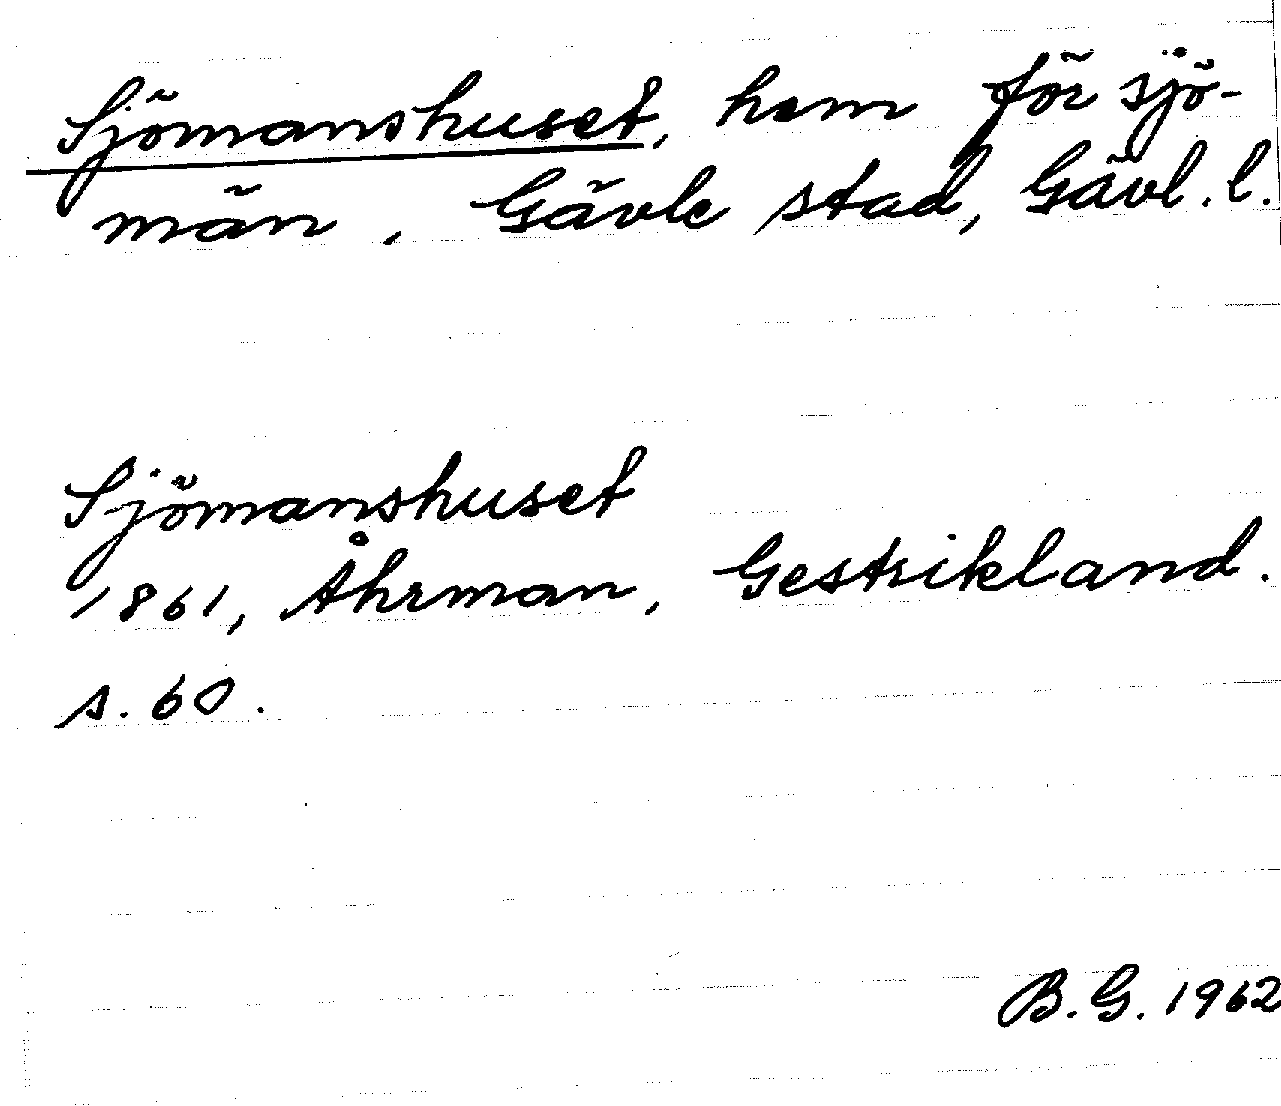 Sjömanshuset, hem för sjö-
män, Gävle stad, Gävl. l.
Sjömanshuset
1861, Åhrman, Gestrikland.
s. 60.
B. G. 1962